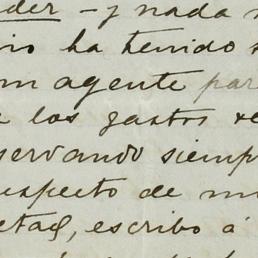 der - y nada
ha tenido
agente par
los gastos re
servando siemp
respecto de m
etad, escribo á